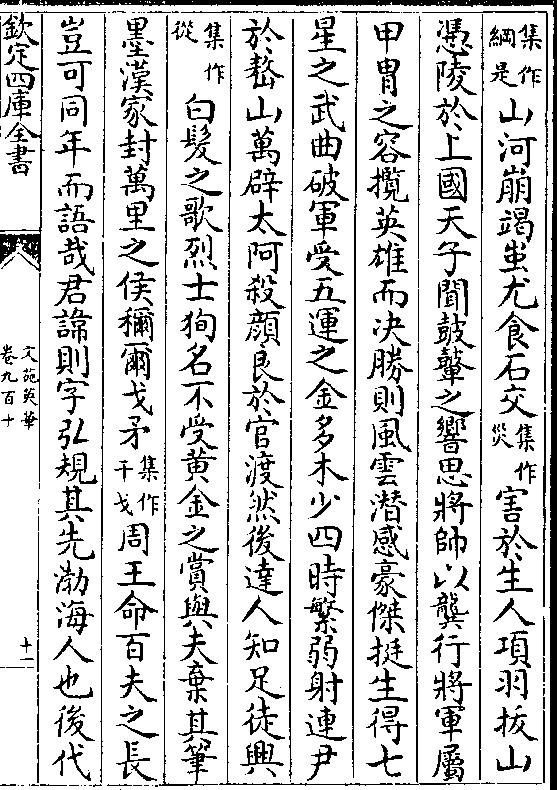 集作綱是山河崩竭蚩尤食石交集作災害於生人項羽拔山
憑陵於上國天子聞鼓鼙之響思將帥以龔行將軍屬
甲冑之容攬英雄而決勝則風雲潜感豪傑挺生得七
星之武曲破軍受五運之金多木少四時繁弱射連尹
於嶅山萬辟太阿殺顔良於官渡然後達人知足徒興
集作從白髮之歌烈士狥名不受黄金之賞與夫棄其筆
墨漢家封萬里之侯稱爾戈矛集作干戈周王命百夫之長
豈可同年而語哉君諱則字弘規其先渤海人也後代
欽定四庫全書
文苑英華
卷九百十
十一